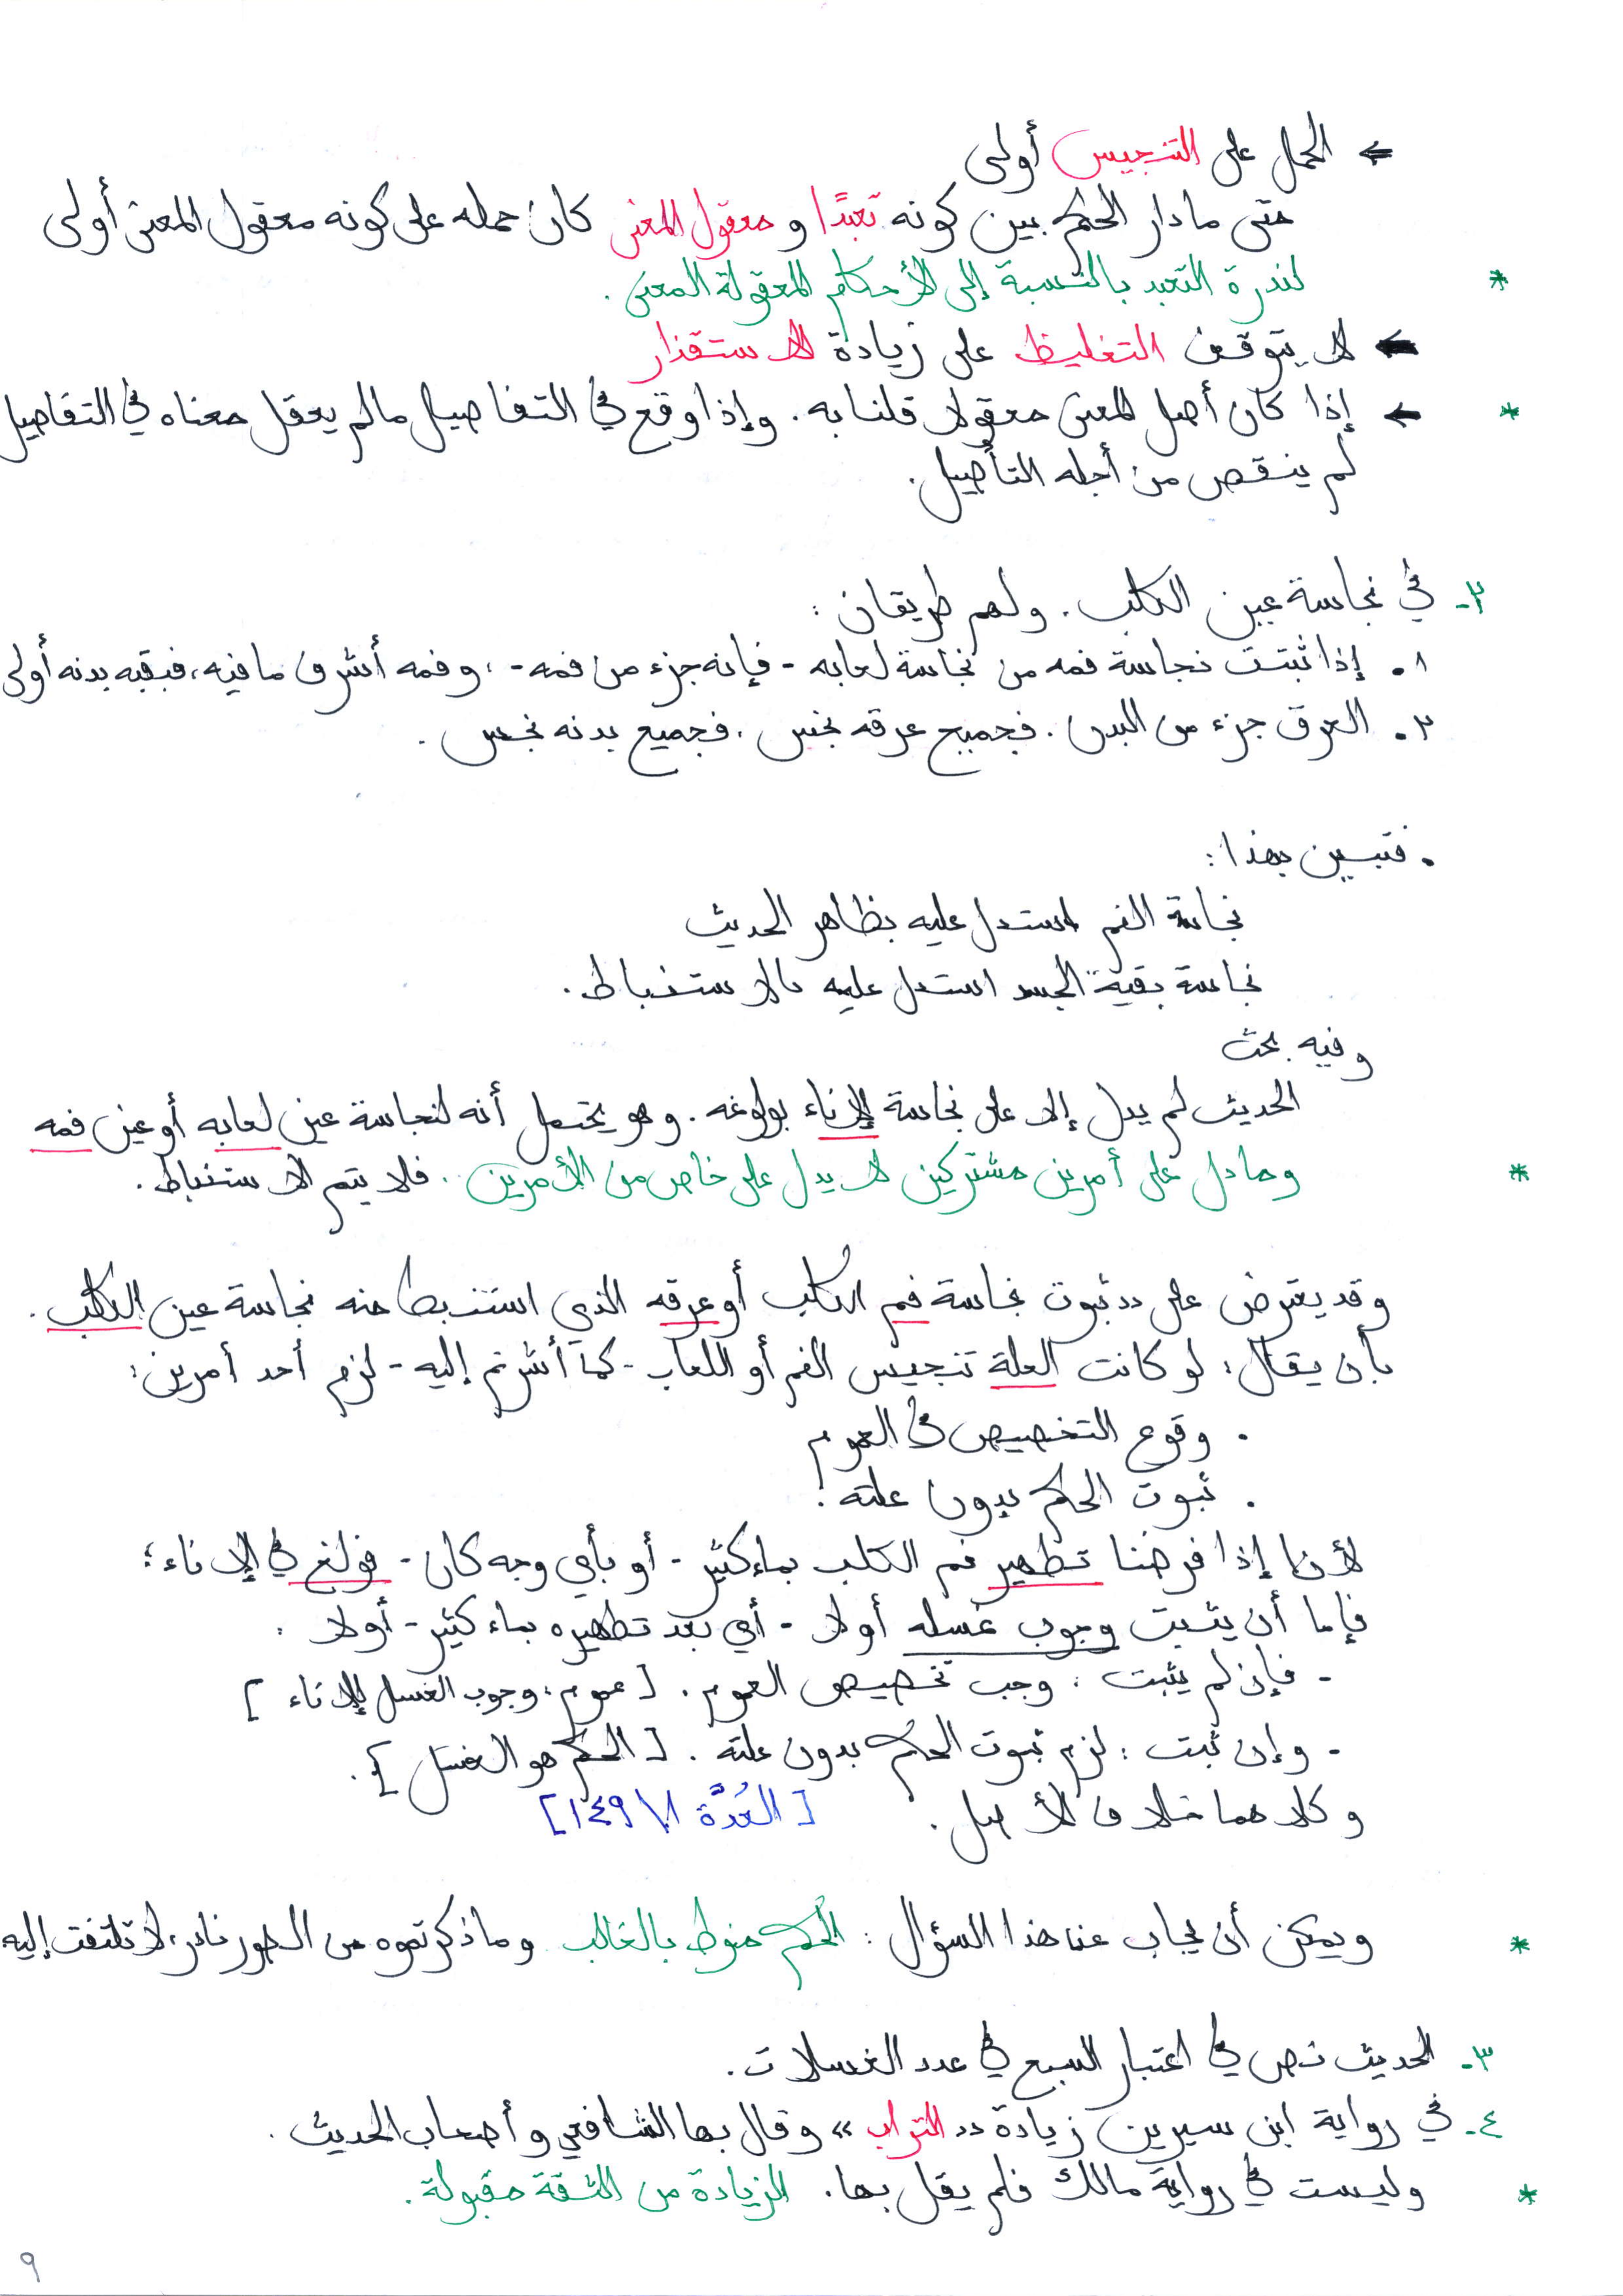 ← الحمل على التنجيس أولى
متى ما دار الحكم بين كونه تعبدًا و معقول المعنى كان حمله على كونه معقول المعنى أولى
* لندرة التعبد بالنسبة إلى الأحكام المعقولة المعنى .
← لا يتوقف التغليظ على زيادة الاستقذار
* ← إذا كان أصل المعنى معقولا قلنا به . وإذا وقع في التفاصيل ما لم يعقل معناه في التفاصيل
لم ينقص من أجله التأصيل .
٢- في نجاسة عين الكلب . ولهم طريقان :
١ . إذا ثبتت نجاسة فمه من نجاسة لعابه - فإنه جزء من فمه - ، وفمه أشرف ما فيه ، فبقية بدنه أولى
٢ . العرق جزء من البدن . فجميع عرقه نجس ، فجميع بدنه نجس .
. فتبين بهذا :
نجاسة الفم استدل عليه بظاهر الحديث
نجاسة بقية الجسد استدل عليه بالاستنباط .
وفيه بحث
الحديث لم يدل إلا على نجاسة الإناء بولوغه . وهو يحتمل أنه لنجاسة عين لعابه أو عين فمه
* وما دل على أمرين مشتركين لا يدل على خاص من الأمرين . فلا يتم الاستنباط .
وقد يعترض على " ثبوت نجاسة فم الكلب أو عرقه الذي استنبط منه نجاسة عين الكلب .
بأن يقال : لو كانت العلة تنجيس الفم أو اللعاب - كما أشرتم إليه - لزم أحد أمرين :
. وقوع التخصيص في العموم
. ثبوت الحكم بدون علته .
لأنا إذا فرضنا تطهير فم الكلب بماء كثير - أو بأي وجه كان - فولغ في الإناء :
فإما أن يثبت وجوب غسله أولا - أي بعد تطهيره بماء كثير - أولا :
- فإن لم يثبت : وجب تخصيص العموم . [ عموم : وجوب الغسل للإناء ]
- وإن ثبت : لزم ثبوت الحكم بدون علته . [ الحكم هو الغسل ] .
وكلاهما خلاف الأصل . [ العُدَّة ١/ ١٤٩ ]
* ويمكن أن يجاب عن هذا السؤال : الحكم منوط بالغالب وما ذكرتموه من الصور نادر ، لا تلتفت إليه
٣- الحديث نص في اعتبار السبع في عدد الغسلات .
٤- في رواية ابن سيرين زيادة " التراب " وقال بها الشافعي وأصحاب الحديث .
* وليست في رواية مالك فلم يقل بها . الزيادة من الثقة مقبولة .
٩